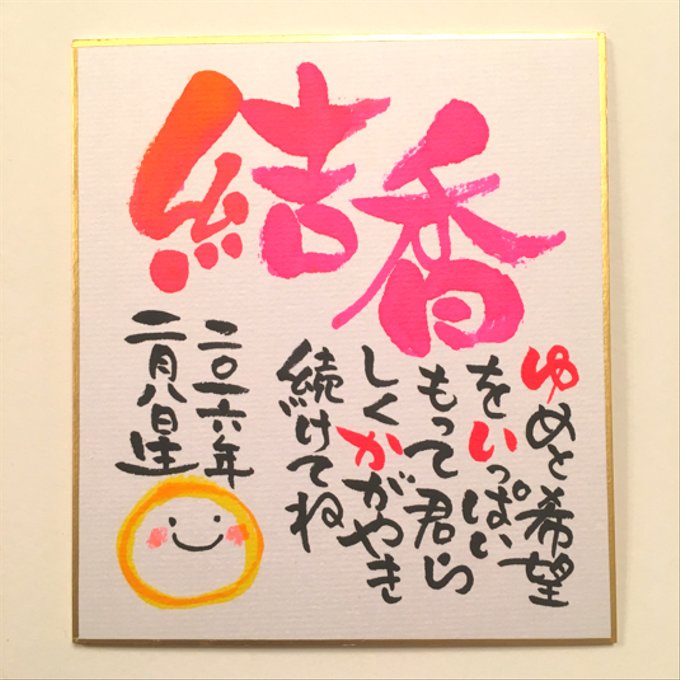 結香
ゆめと希望
をいっぱい
もって君ら
しくかがやき
続けてね
二〇一六年
二月八日生